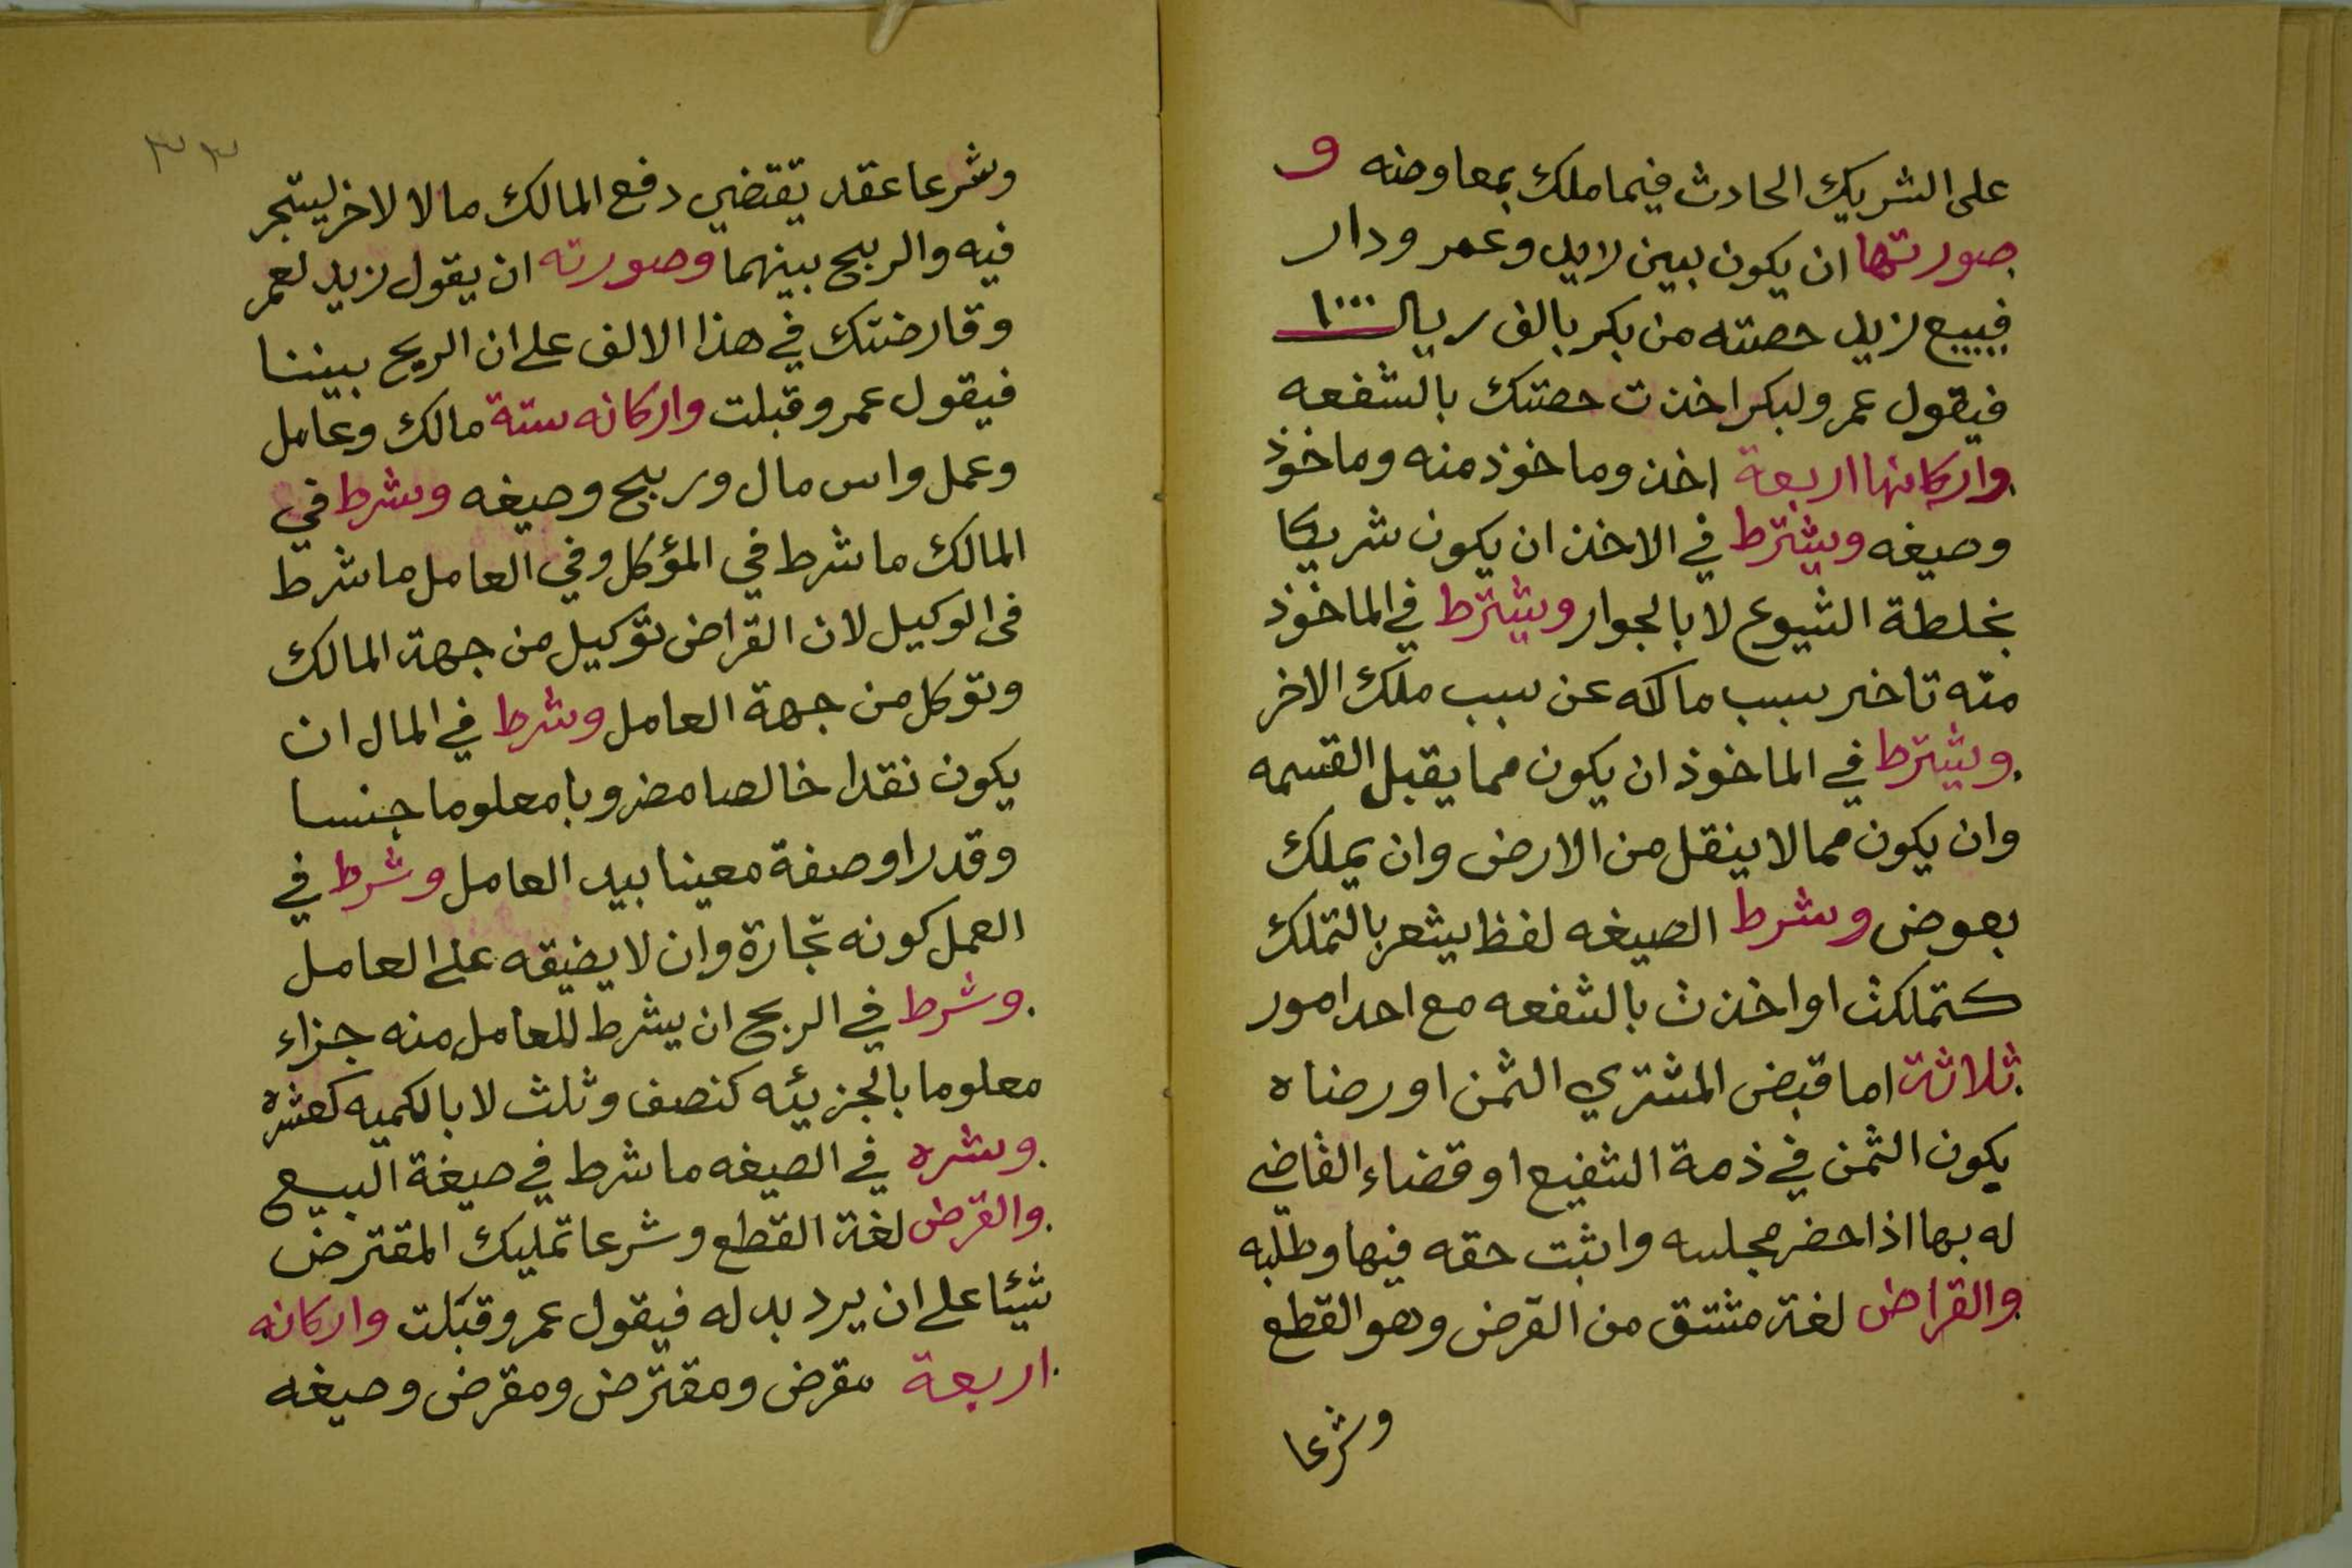 على الشريك الحادث فيما ملك بمعاوضه و
صورتها ان يكون بين زيد وعمر ودار
فيبيع زيد حصته من بكر بالف ريال ١٠٠٠
فيقول عمر ولبكر اخذت حصتك بالشفعه
واركانها اربعة اخذ وماخوذ منه وماخوذ
وصيغه ويشترط في الاخذ ان يكون شريكا
بخلطة الشيوع لا بالجوار ويشترط في الماخوذ
منه تاخر سبب ملكه عن سبب ملك الاخر
ويشترط في الماخوذ ان يكون مما يقبل القسمه
وان يكون مما لا ينقل من الارض وان يملك
بعوض وشرط الصيغه لفظ يشعر بالتملك
كتملكت او اخذت بالشفعه مع احد امور
ثلاثة اما قبض المشتري الثمن او رضاه
يكون الثمن في ذمة الشفيع او قضاء القاضي
له بها اذا حضر مجلسه واثبت حقه فيها وطلبه
والقراض لغة مشتق من القرض وهو القطع
وشرعا
٣٣
وشرعا عقد يقتضي دفع المالك مالا لاخر ليتجر
فيه والربح بينهما وصورته ان يقول زيد لعمر
وقارضتك في هذا الالف على ان الربح بيننا
فيقول عمرو قبلت واركانه ستة مالك وعامل
وعمل وراس مال وربح وصيغه وشرط في
المالك ما شرط في المؤكل وفي العامل ما شرط
في الوكيل لان القراض توكيل من جهة المالك
وتوكل من جهة العامل وشرط في المال ان
يكون نقدا خالصا مضروبا معلوما جنسا
وقدرا وصفة معينا بيد العامل وشرط في
العمل كونه تجارة وان لا يضيقه على العامل
وشرط في الربح ان يشرط للعامل منه جزاء
معلوما بالجزيئه كنصف وثلث لا بالكميه كعشره
وشره في الصيغه ما شرط في صيغة البيع
والقرض لغة القطع وشرعا تمليك المقترض
شيئا على ان يرد بدله فيقول عمرو قبلت واركانه
اربعة مقرض ومقترض ومقرض وصيغه